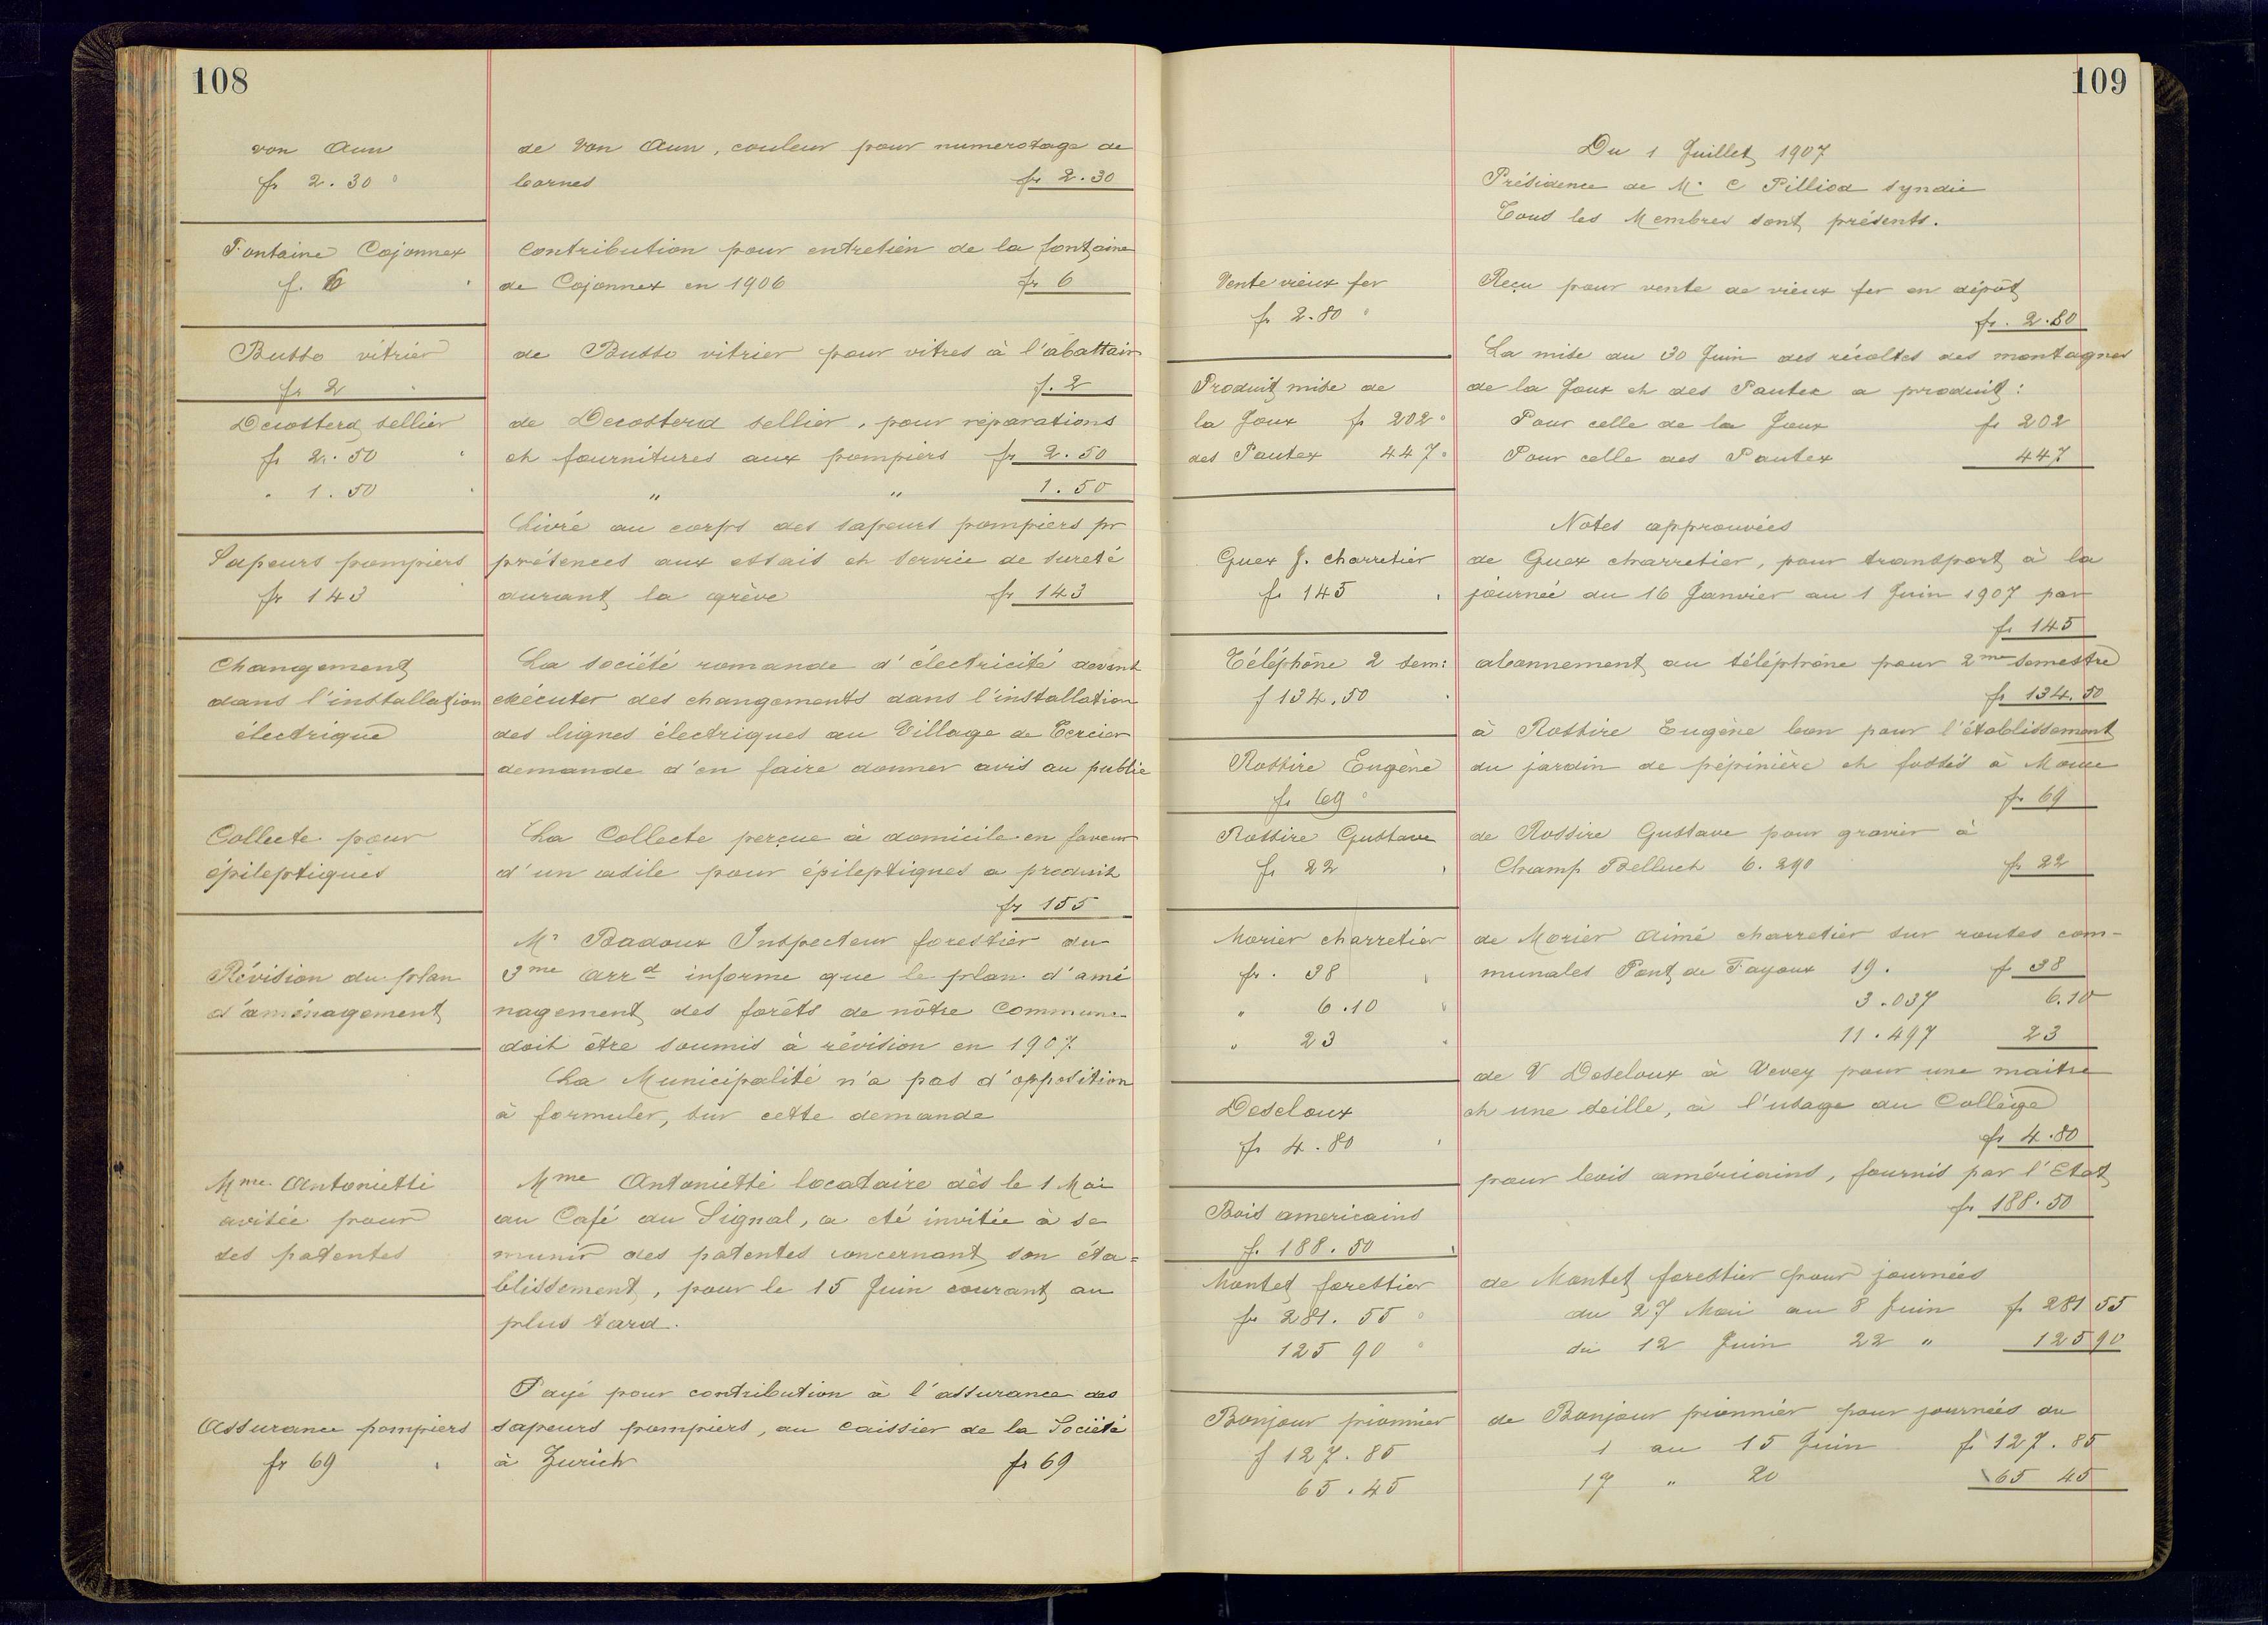 108
von Aun
fr 2.30
de Von Aun, couleur pour numerotage de
bornes fr 2.30
Fontaine Cojonnex
f. 6
Contribution pour entretien de la fontaine
de Cojonnex en 1906 fr 6
Busso vitrier
fr 2
de Busso vitrier pour vitres à l'abattoir
f. 2
Decosterd sellier
fr 2.50
" 1.50
de Decosterd sellier, pour réparations
et fournitures aux pompiers fr 2.50
" " 1.50
Livré au corps des sapeurs pompiers pr
Sapeurs pompiers
fr 143
présences aux essais et service de sureté
durant la grève fr 143
Changement
dans l'installation
électrique
La société romande d'électricité devant
exécuter des changements dans l'installation
des lignes électriques au Village de Tercier
demande d'en faire donner avis au public
Collecte pour
épileptiques
La Collecte perçue à domicile en faveur
d'un asile pour épileptiques a produit
fr 155
Révision du plan
d'aménagement
Mr Badoux Inspecteur forestier du
3me Arrd informe que le plan d'amé
nagement des forêts de nôtre Commune
doit être soumis à révision en 1907.
La Municipalité n'a pas d'opposition
à formuler, sur cette demande
Mme Antonietti
avisée pour
des patentes
Mme Antonietti locataire dès le 1 Mai
au Café du Signal, a eté invitée à se
munir des patentes concernant son éta=
blissement, pour le 15 Juin courant au
plus tard.
Assurance pompiers
fr 69
Payé pour contribution à l'assurance des
sapeurs pompiers, au caissier de la Société
à Zurich fr 69
109
Du 1 Juillet 1907
Présidence de Mr C Pilliod syndic
Tous les Membres sont présents.
Vente vieux fer
fr 2.80
Reçu pour vente de vieux fer en dépôt
fr. 2.80
Produit mise de
la Joux fr 202
des Pautex 447
La mise du 30 Juin des récoltes des montagnes
de la Joux et des Pautex a produit:
Pour celle de la Joux fr 202
Pour celle des Pautex 447
Notes approuvées
Guex J. charretier
fr 145
de Guex charretier, pour transport à la
journée du 16 Janvier au 1 Juin 1907 par
fr 145
Téléphone 2 sem:
f 134.50
abonnement au téléphone pour 2me semestre
fr 134.50
Rossire Eugène
fr 69
à Rossire Eugène bon pour l'établissement
du jardin de pépinière et fossés à
fr 69
Rossire Gustave
fr 22
de Rossire Gustave pour gravier à
Champ Belluet 6.290 fr 22
Morier charretier
fr. 38
" 6.10
" 23
de Morier Aimé charretier sur routes com-
munales Pont de Fayoux 19. f 38
3.037 6.10
11.497 23
Descloux
fr 4.80
de V Descloux à Vevey pour une
et une seille, à l'usage du Collège
fr 4.80
Bois americains
f. 188.50
pour bois américains, fournis par l'Etat
fr 188.50
Montet forestier
fr 281.55
125 90
de Montet forestier pour journées
du 27 Mai au 8 Juin fr 281 55
du 12 Juin 22 " 125 90
Bonjour pionnier
f 127.85
65.45
de Bonjour pionnier pour journées du
1 au 15 Juin fr 127.85
17 " 20 65 45